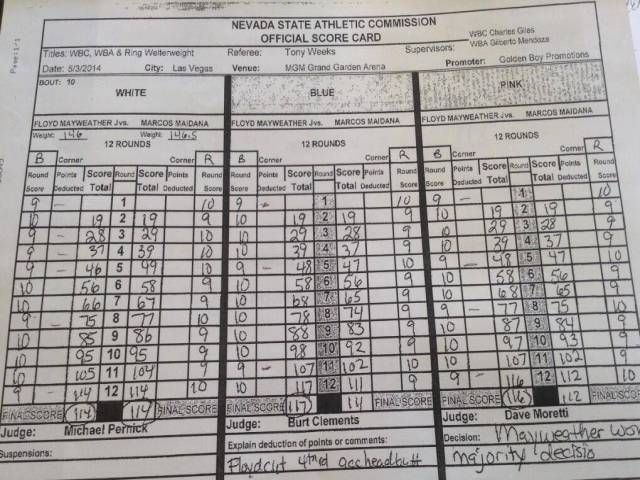 NEVADA STATE ATHLETIC COMMISSION
OFFICIAL SCORE CARD
Page: 1-1
Titles: WBC, WBA & Ring Welterweight Referee: Tony Weeks Supervisors: WBC Charles Giles
WBA Gilberto Mendoza
Date: 5/3/2014 City: Las Vegas Venue: MGM Grand Garden Arena Promoter: Golden Boy Promotions
BOUT: 10
WHITE BLUE PINK
FLOYD MAYWEATHER Jvs. MARCOS MAIDANA FLOYD MAYWEATHER Jvs. MARCOS MAIDANA FLOYD MAYWEATHER Jvs. MARCOS MAIDANA
Weight: 146 Weight: 146.5
12 ROUNDS 12 ROUNDS 12 ROUNDS
B Corner Corner R B Corner Corner R B Corner Corner R
Round Points Score Round Score Points Round Round Points Score Round Score Points Round Round Points Score Round Score Points Round
Score Deducted Total Total Deducted Score Score Deducted Total Total Deducted Score Score Deducted Total Total Deducted Score
9 - 1 10 9 - 1 10 9 - 1 10
10 19 2 19 9 10 19 2 19 9 10 19 2 19 9
9 - 28 3 29 10 10 29 3 28 9 10 29 3 28 9
9 - 37 4 39 10 10 39 4 37 9 10 39 4 37 9
9 - 46 5 49 10 9 - 48 5 47 10 9 - 48 5 47 10
10 56 6 58 9 10 58 6 56 9 10 58 6 56 9
10 66 7 67 9 10 68 7 65 9 10 68 7 65 9
9 - 75 8 77 10 10 78 8 74 9 9 - 77 8 75 10
10 85 9 86 9 10 88 9 83 9 10 87 9 84 9
10 95 10 95 9 10 98 10 92 9 10 97 10 93 9
10 105 11 104 9 9 - 107 11 102 10 10 107 11 102 9
9 - 114 12 114 10 10 117 12 111 9 9 - 116 12 112 10
FINAL SCORE 114 114 FINAL SCORE FINAL SCORE 117 111 FINAL SCORE FINAL SCORE 116 112 FINAL SCO
Judge: Michael Pernick Judge: Burt Clements Judge: Dave Moretti
Suspensions: Explain deduction of points or comments: Decision: Mayweather won
Floyd cut 4th rd acc headbutt majority decisio